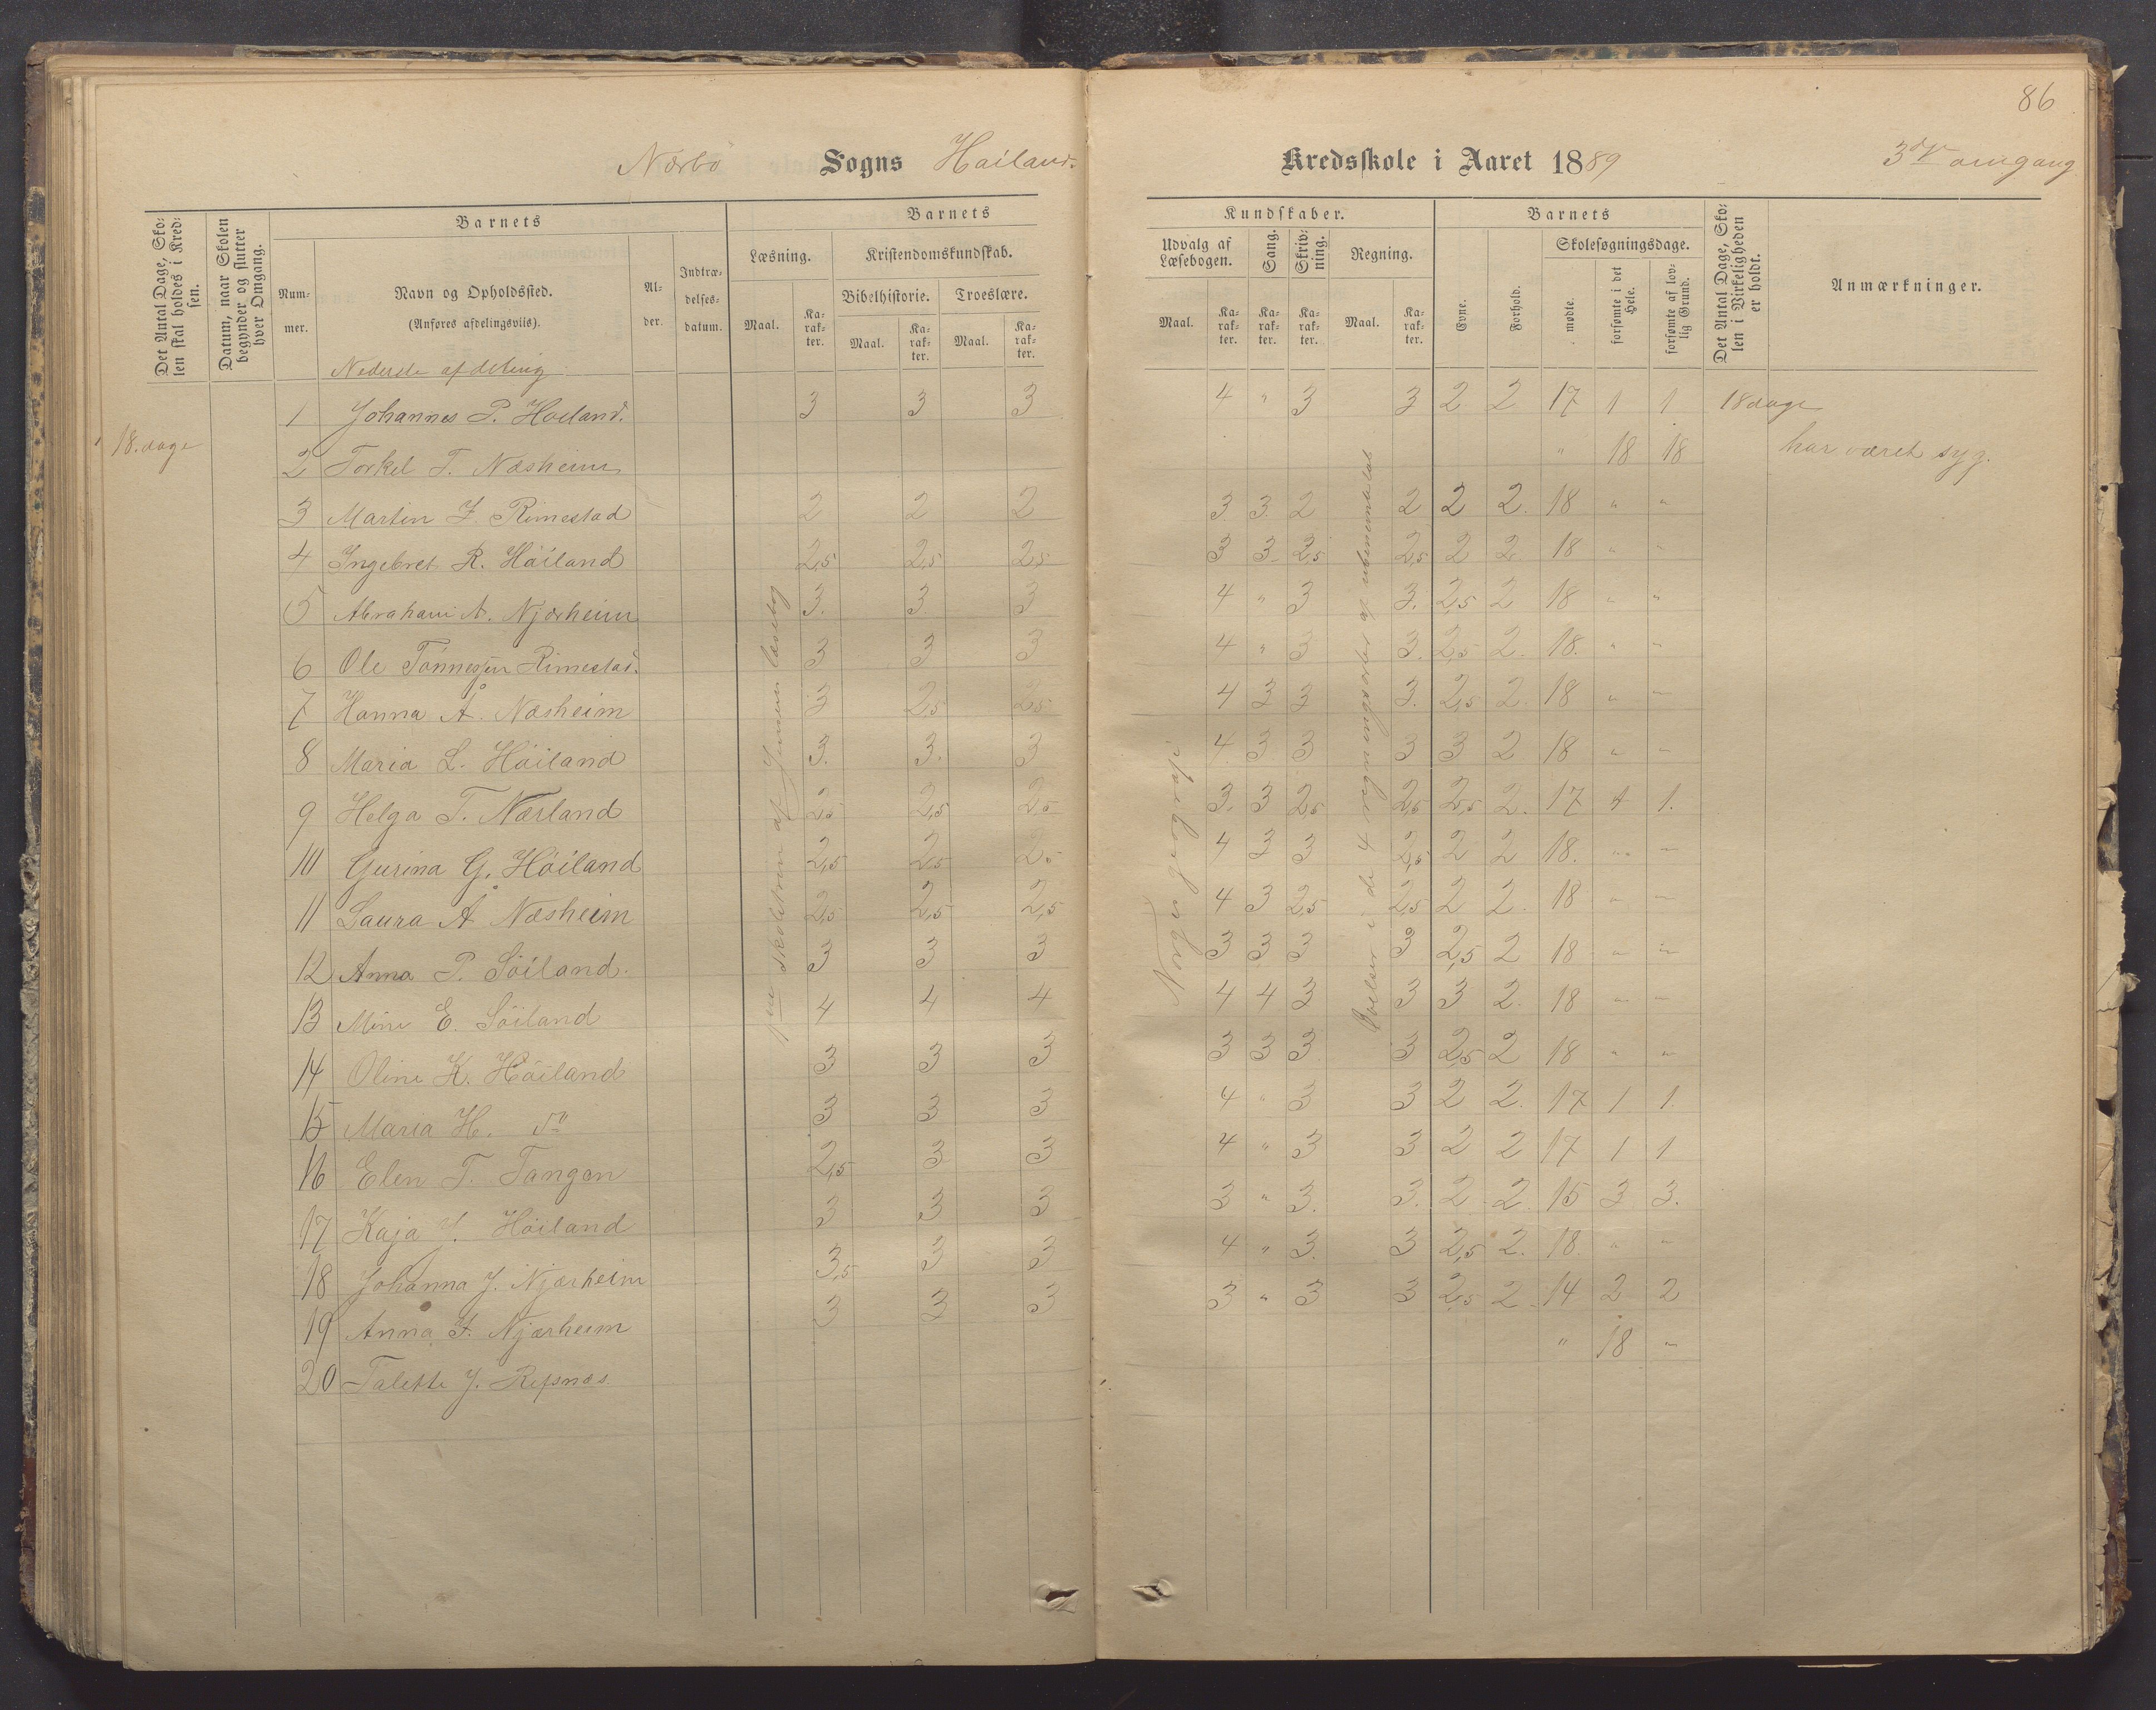 86
Nærbö Sogns Høiland. Kredsskole i Aaret 1889 3die omgang
Det Antal Dage, Skolen skal holdes i Kredsen.
Datum, naar Skolen begynder og slutter hver Omgang.
Barnets
Nummer.
Navn og Opholdssted.
(Anføres afdelingsviis).
Alder.
Indtrædelsesdatum.
Barnets Kundskaber.
Læsning.
Maal. Karakter.
Kristendomskundskab.
Bibelhistorie. Troeslære.
Maal. Karakter. Maal. Karakter.
Udvalg af Læsebogen.
Maal. Karakter.
Sang.
Karakter.
Skrivning.
Karakter.
Regning.
Maal. Karakter.
Barnets
Evne.
Forhold.
Skolesøgningsdage.
mødte.
forsømte i det Hele.
forsømte af lovlig Grund.
Det Antal Dage, Skolen i Virkeligheden er holdt.
Anmærkninger.
Nederste afdeling
18. dage
1ste skoletrin af Jensens læsebog
Norges geografi.
Øvelser i de 4 regningsarter
1 Johannes P. Høiland. 3 3 3 4 " 3 3 2 2 17 1 1 18 dage
2 Torkel T. Næsheim " 18 18 har været syg.
3 Martin J. Rimestad 2 2 2 3 3 2 2 2 2. 18 " "
4 Ingebret R. Höiland 2,5 2,5 2,5 3 3 2,5 2,5 2 2 18 " "
5 Abraham A. Njærheim 3. 3. 3 4 " 3 3. 2,5 2 18 " "
6 Ole Tönnessen Rimestad. 3 3 3 4 " 3 3. 2,5 2. 18. " "
7 Hanna Å. Næsheim 3 2,5 2,5 4 3 3 3. 2,5 2. 18 " "
8 Maria L. Höiland 3. 3. 3 4 3 3 3 3 2 18 " "
9 Helga T. Nærland 2,5 2,5 2,5 3. 3 2,5 2,5 2,5 2. 17 1 1.
10 Gurina G. Höiland 2,5 2,5 2,5 4 3 3 2,5 2 2 18. " "
11 Laura Å Næsheim 2,5 2,5 2,5 4 3 2,5 2,5 2 2. 18 " "
12 Anna P. Söiland. 3 3 3 3 3 3 3 2,5 2 18 " "
13 Mine E. Söiland 4 4 4 4 4 3 3 3 2. 18 " "
14 Oline K. Höiland 3 3 3 3 3 3 3 2,5 2 18 " "
15 Maria H. do 3 3 3 4 " 3 3 2 2. 17 1 1.
16 Elen T. Tangen 2,5 3 3 4 " 3 3 2 2 17 1 1
17 Kaja J. Höiland 3 3 3 3 " 3. 3. 2 2. 15 3 3.
18 Johanna J. Njærheim 3,5 3 3 4 " 3. 3 2,5 2. 18 " "
19 Anna J. Njærheim 3 3 3 3 " 3 3 2,5 2 14 2 2
20 Talette J. Refsnæs. " 18 "